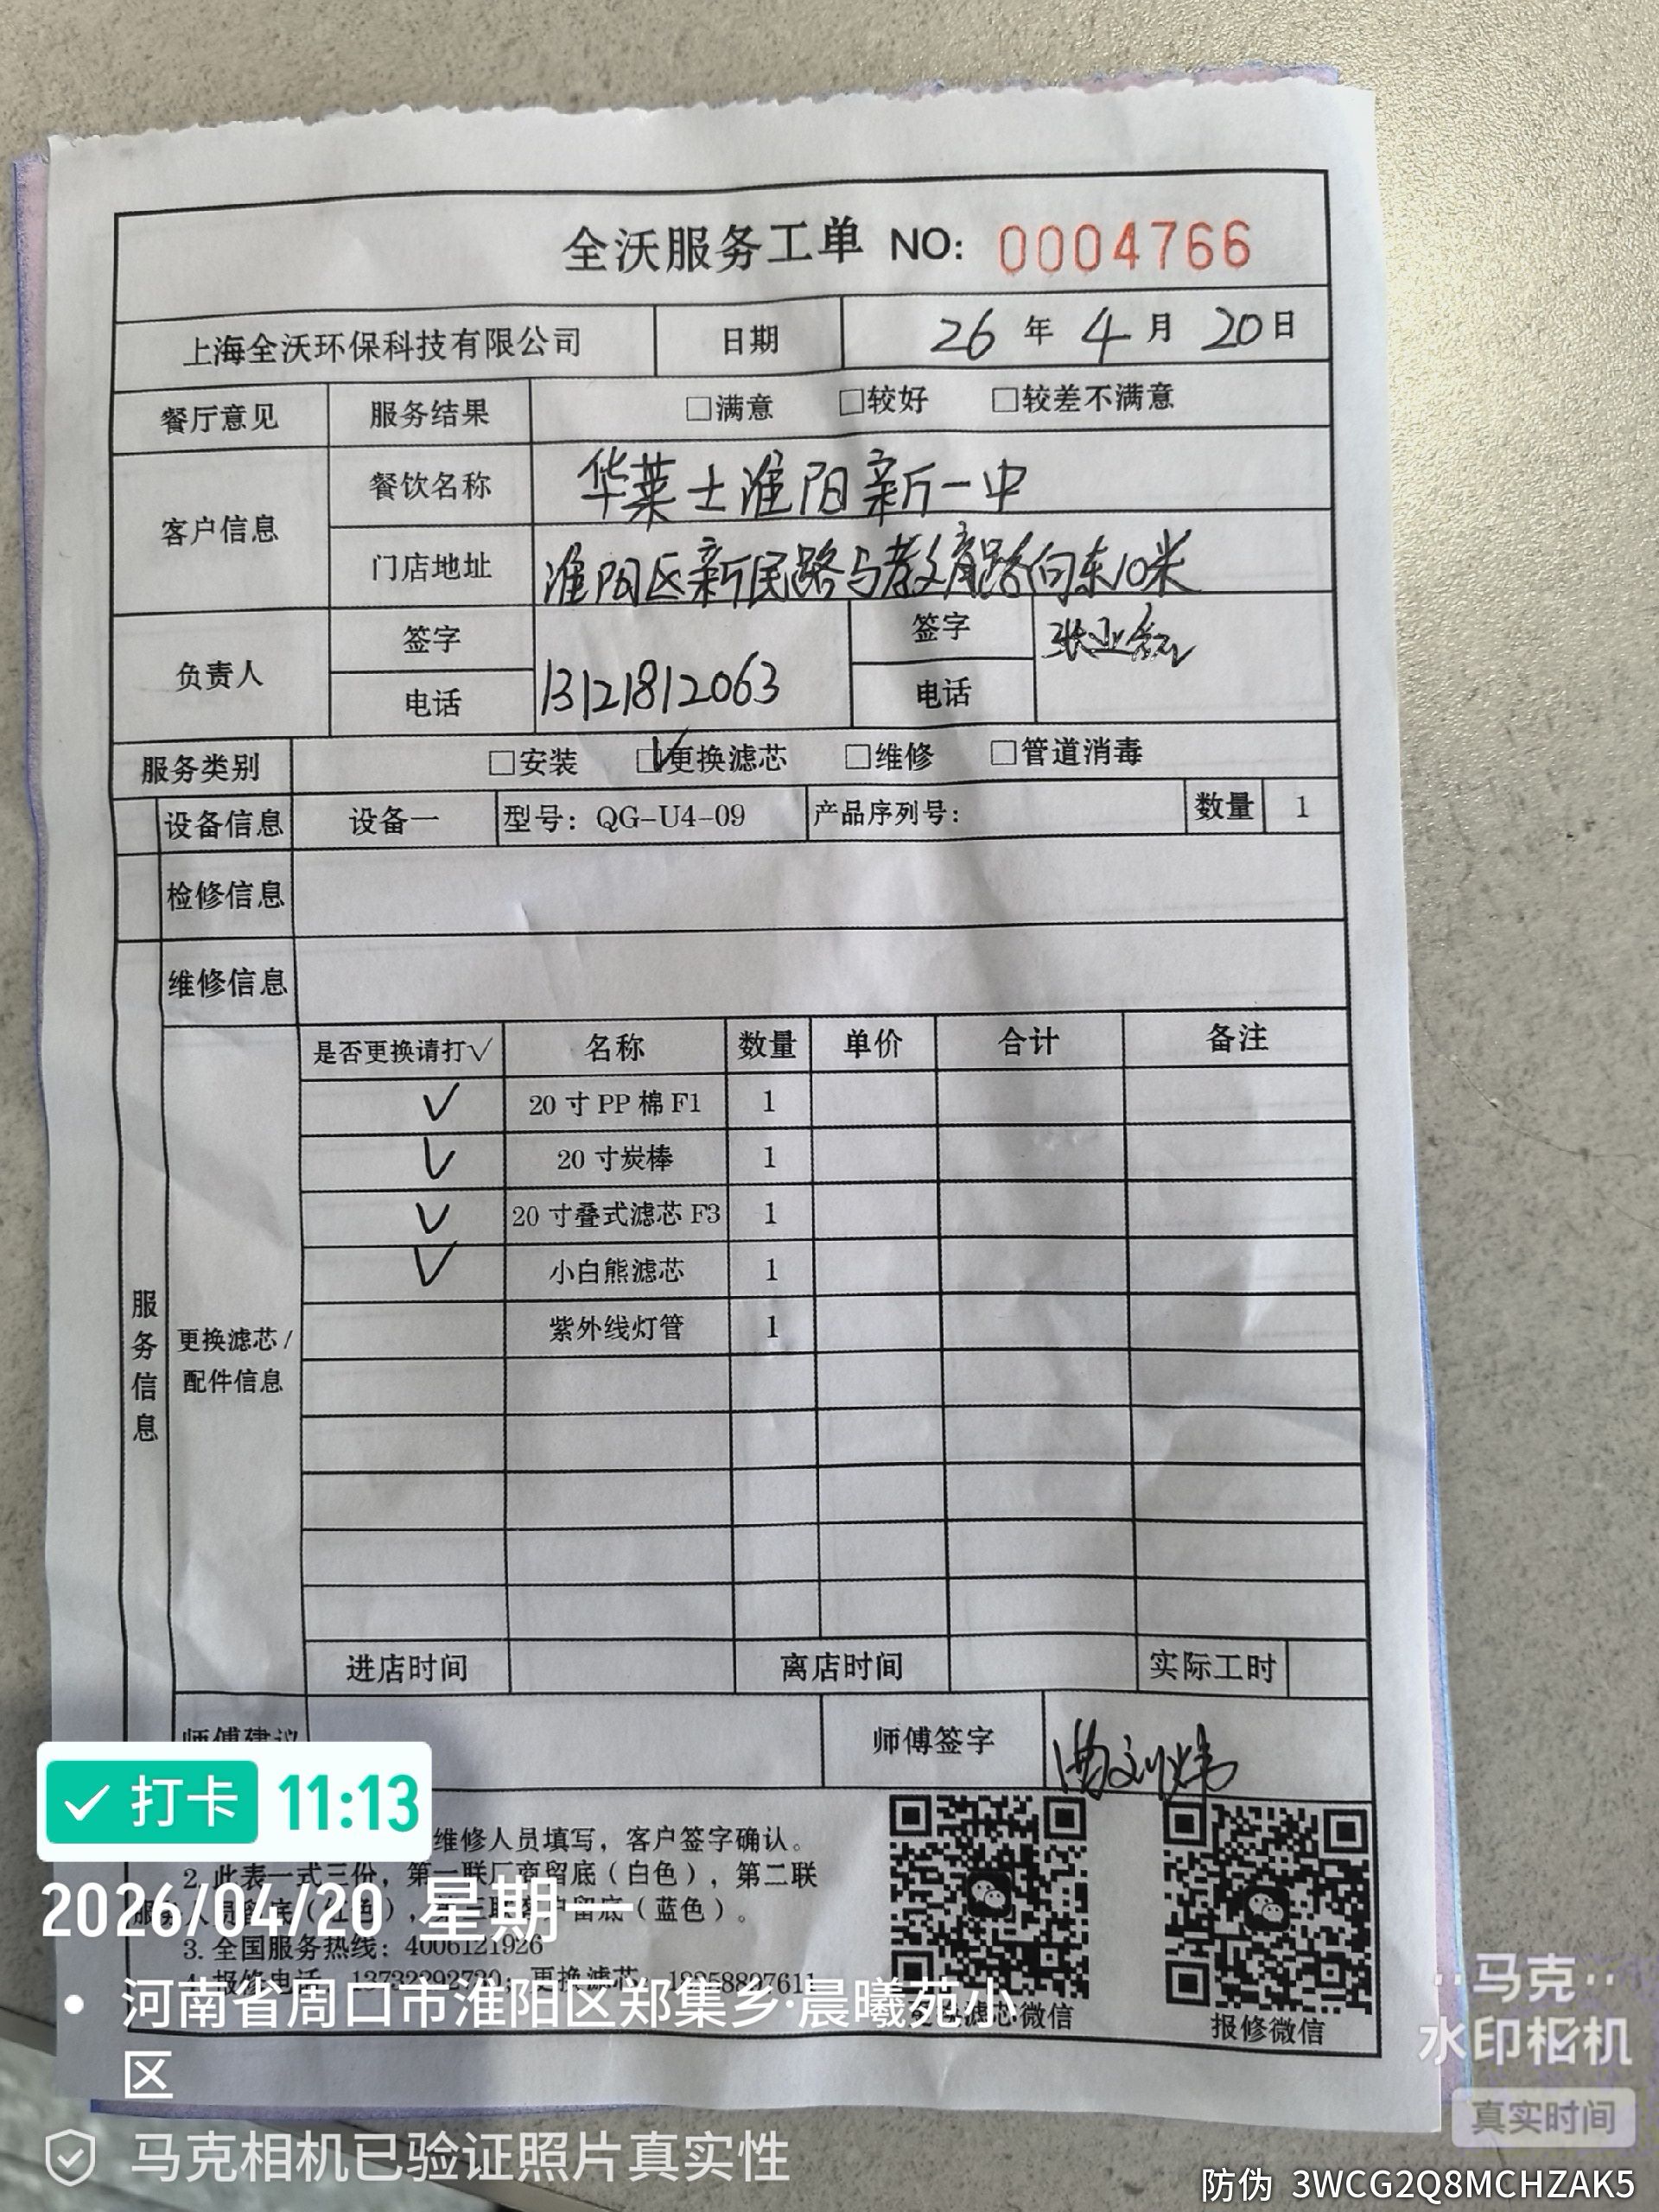 全沃服务工单 NO: 0004766
上海全沃环保科技有限公司 日期 26 年 4 月 20 日
餐厅意见 服务结果 □满意 □较好 □较差不满意
客户信息 餐饮名称 华莱士淮阳新一中
门店地址 淮阳区新民路与教育路向东10米
负责人 签字 签字 张业
电话 13121812063 电话
服务类别 □安装 ☑更换滤芯 □维修 □管道消毒
设备信息 设备一 型号: QG-U4-09 产品序列号: 数量 1
检修信息
维修信息
服务信息
更换滤芯/
配件信息
是否更换请打√ 名称 数量 单价 合计 备注
√ 20寸PP棉F1 1
√ 20寸炭棒 1
√ 20寸叠式滤芯F3 1
√ 小白熊滤芯 1
紫外线灯管 1
进店时间 离店时间 实际工时
师傅建议 师傅签字
维修人员填写，客户签字确认。
2. 此表一式三份，第一联厂商留底（白色），第二联
留底（蓝色）。
3. 全国服务热线: 4006121926
4. 报修电话: 13732292720; 更换滤芯:
滤芯微信 报修微信
打卡 11:13
2026/04/20 星期一
河南省周口市淮阳区郑集乡·晨曦苑小
区
马克相机已验证照片真实性
马克
水印相机
真实时间
防伪 3WCG2Q8MCHZAK5